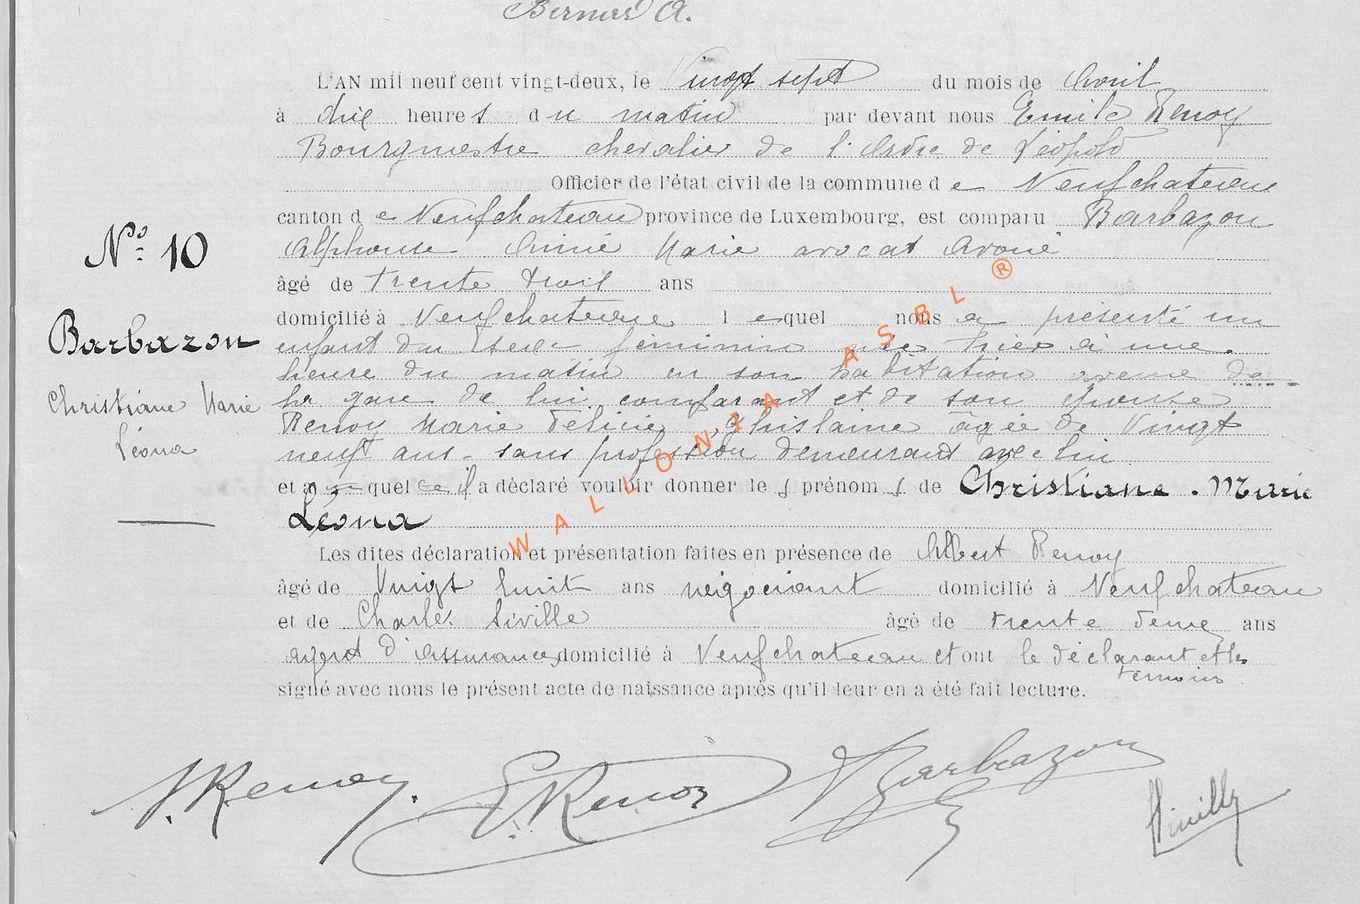 Bernard A.
L'AN mil neuf cent vingt-deux, le Vingt sept du mois de Avril
à dix heures du matin par devant nous Emile Renoy
Bourgmestre chevalier de l'Ordre de Léopold
Officier de l'état civil de la commune de Neufchateau
N° 10
canton de Neufchateau province de Luxembourg, est comparu Barbazon
Alphonse Aimé Marie avocat avoué
âgé de trente trois ans
Barbazon
domicilié à Neufchateau lequel nous a présenté un
enfant du sexe féminin née hier à une
heure du matin en son habitation avenue de
Christiane Marie
la gare de lui comparant et de son épouse
Renoy Marie Félicie Ghislaine âgée de Vingt
Léona
neuf ans - sans profession demeurant avec lui
et auquel il a déclaré vouloir donner les prénoms de Christiane. Marie
Léona
Les dites déclaration et présentation faites en présence de Albert Renoy
âgé de Vingt huit ans négociant domicilié à Neufchateau
et de Charles âgé de trente deux ans
agent d'assurances domicilié à Neufchateau et ont le déclarant et les
témoins
signé avec nous le présent acte de naissance après qu'il leur en a été fait lecture.
A. Renoy. E. Renoy A Barbazon
WALLONIA ASBL ®